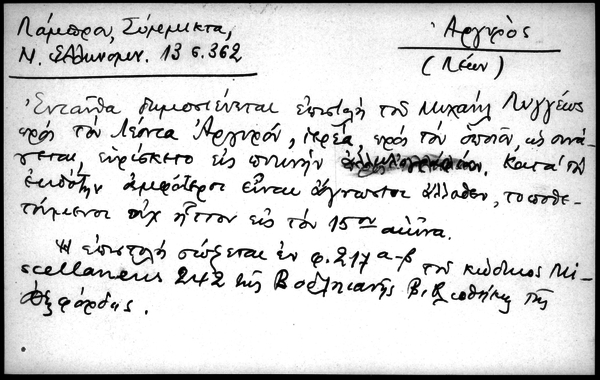 Λάμπρου, Σύμμικτα,
Ν. Ἑλληνομν. 13 σ. 362
Ἀργυρὸς
(Λέων)
Ἐνταῦθα δημοσιεύεται ἐπιστολὴ τοῦ Μιχαὴλ Λυγγέως
πρὸς τὸν Λέοντα Ἀργυρόν, ἱερέα, πρὸς τὸν ὁποῖον, ὡς συνά-
γεται, εὑρίσκετο εἰς πυκνὴν ἀλληλογραφίαν. Κατὰ τὸν
ἐκδότην ἀμφότεροι εἶναι ἄγνωστοι ἄλλοθεν, τοποθε-
τούμενοι οὐχ ἧττον εἰς τὸν 15ον αἰῶνα.
Ἡ ἐπιστολὴ σῴζεται ἐν φ. 217 α-β τοῦ κώδικος Mi-
scellaneus 242 τῆς Βοδληιανῆς Βιβλιοθήκης τῆς
Ὀξφόρδης.